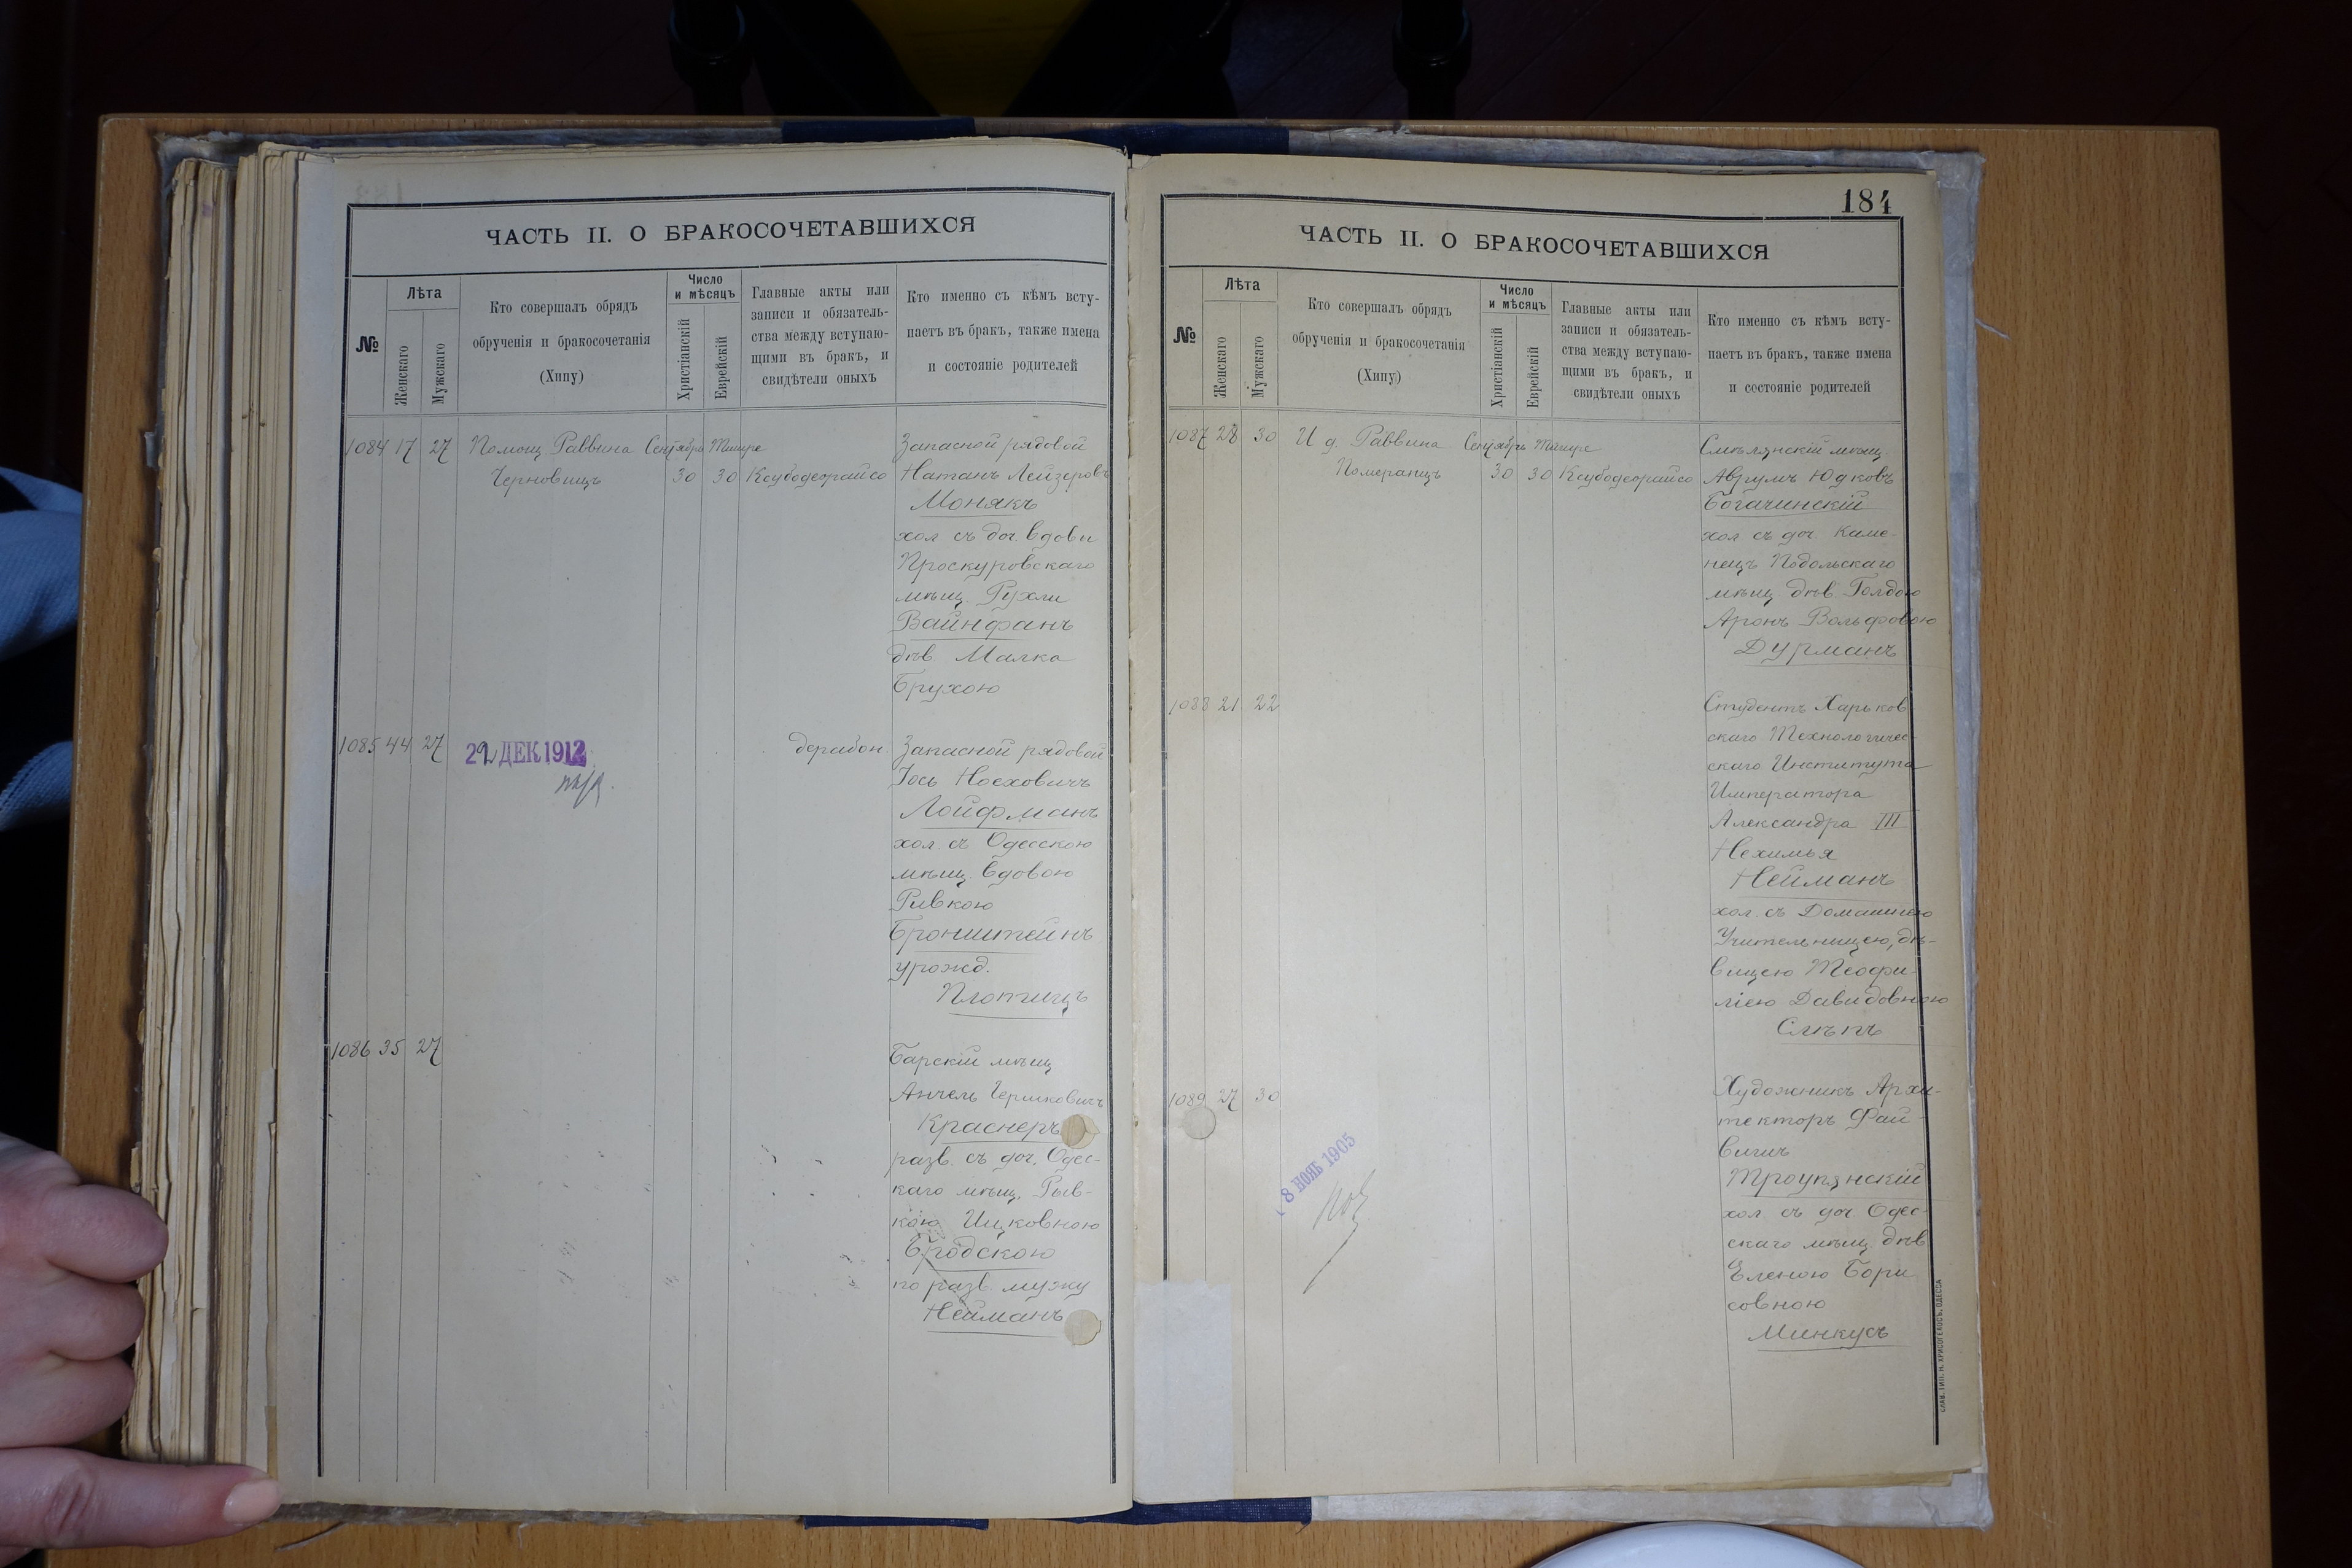 ЧАСТЬ II. О БРАКОСОЧЕТАВШИХСЯ
№
Лѣта
Женскаго
Мужскаго
Кто совершалъ обрядъ
обрученія и бракосочетанія
(Хипу)
Число
и мѣсяцъ
Христіанскій
Еврейскій
Главные акты или
записи и обязатель-
ства между вступаю-
щими въ бракъ, и
свидѣтели оныхъ
Кто именно съ кѣмъ всту-
паетъ въ бракъ, также имена
и состояніе родителей
1084 17 27 Помощ Раввина Сентябрь Тишре Запасной рядовой
Черновицъ 30 30 Ксубодеорайсо Натанъ Лейзеровъ
Монякъ
хол съ доч. вдовы
Проскуровскаго
мѣщ. Рухли
Вайнфанъ
дѣв. Малка
Брухою
1085 44 27 дерабон. Запасной рядовой
22 ДЕК 1912
Іось Ноеховичъ
Лойфманъ
хол. съ Одесскою
мѣщ. вдовою
Ривкою
Бронштейнъ
урожд.
Плотицъ
1086 35 27 Барскій мѣщ
Анчель Гершковичъ
Краснеръ
разв. съ доч. Одес-
каго мѣщ. Рыв-
кою Ицковною
Бродскою
по разв. мужу
Нейманъ
184
ЧАСТЬ II. О БРАКОСОЧЕТАВШИХСЯ
№
Лѣта
Женскаго
Мужскаго
Кто совершалъ обрядъ
обрученія и бракосочетанія
(Хипу)
Число
и мѣсяцъ
Христіанскій
Еврейскій
Главные акты или
записи и обязатель-
ства между вступаю-
щими въ бракъ, и
свидѣтели оныхъ
Кто именно съ кѣмъ всту-
паетъ въ бракъ, также имена
и состояніе родителей
1087 28 30 И д. Раввина Сентябрь Тишре Смѣлянскій мѣщ.
Померанцъ 30 30 Ксубодеорайсо Аврумъ Юдковъ
Богачинскій
хол съ доч. Каме-
нецъ Подольскаго
мѣщ дѣв. Голдою
Аронъ Вольфовою
Дурманъ
1088 21 22 Студентъ Харьков
скаго Технологичес-
скаго Института
Императора
Александра III
Нехимья
Нейманъ
хол. съ Домашнею
Учительницею, дѣ-
вицею Теофи-
лією Давидовною
Слѣпъ
1089 27 30 Художникъ Архи-
текторъ Фай-
вишъ
Троупянскій
хол. съ доч. Одес-
скаго мѣщ дѣв
Еленою Бори
совною
Минкусъ
8 НОЯБ 1905
СЛАВ. ТИП. Н. ХРИСОГЕЛОСЪ, ОДЕССА